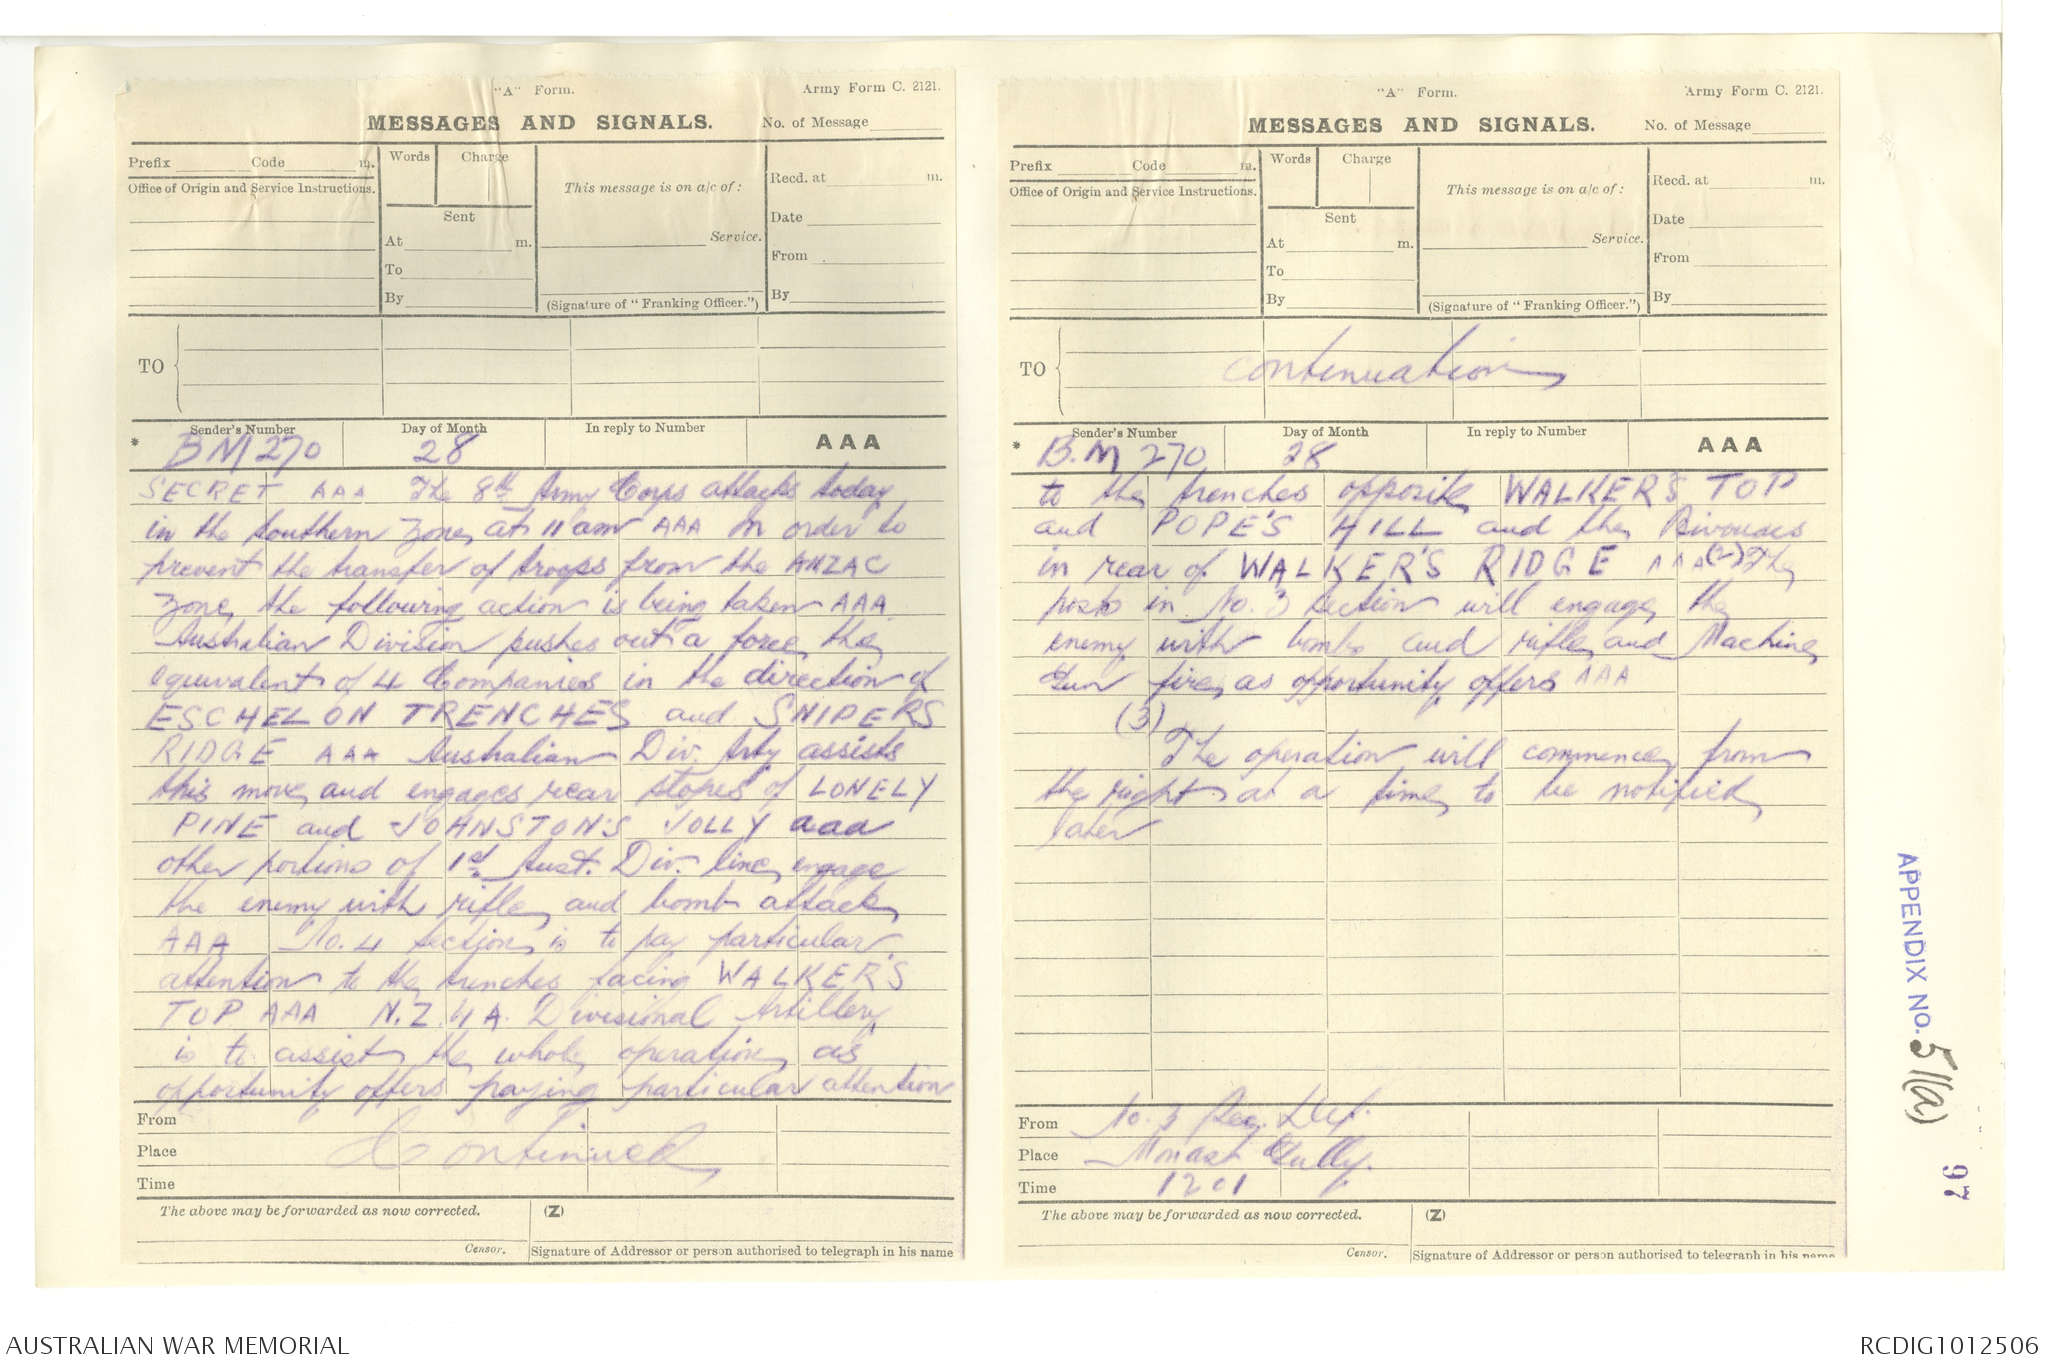 "A" Form.
Army Form C. 2121.
MESSAGES AND SIGNALS.
No. of Message
Prefix Code m.
Words Charge
This message is on a/c of :
Recd. at m.
Office of Origin and Service Instructions.
Sent
Date
At m.
Service.
From
To
By
(Signature of "Franking Officer.")
By
TO
Sender's Number
Day of Month
In reply to Number
AAA
BM 270
28
SECRET AAA The 8th Army Corps attacks today
in the Southern Zone at 11 am AAA In order to
prevent the transfer of troops from the ANZAC
Zone the following action is being taken AAA
Australian Division pushes out a force the
equivalent of 4 Companies in the direction of
ESCHELON TRENCHES and SNIPERS
RIDGE AAA Australian Div. Arty assists
this move and engages rear slopes of LONELY
PINE and JOHNSTON'S JOLLY aaa
other portions of 1st Aust. Div. line engage
the enemy with rifle and bomb attack
AAA No. 4 Section is to pay particular
attention to the trenches facing WALKER'S
TOP AAA N.Z. & A. Divisional Artillery
is to assist the whole operation as
opportunity offers paying particular attention
From
Place
Time
Continued
The above may be forwarded as now corrected.
(Z)
Censor.
Signature of Addressor or person authorised to telegraph in his name
"A" Form.
Army Form C. 2121.
MESSAGES AND SIGNALS.
No. of Message
Prefix Code m.
Words Charge
This message is on a/c of :
Recd. at m.
Office of Origin and Service Instructions.
Sent
Date
At m.
Service.
From
To
By
(Signature of "Franking Officer.")
By
TO
continuation
Sender's Number
Day of Month
In reply to Number
AAA
B.M 270
28
to the trenches opposite WALKER'S TOP
and POPE'S HILL and the Bivouacs
in rear of WALKER'S RIDGE AAA (2) The
posts in No. 3 Section will engage the
enemy with bombs and rifle and Machine
Gun fire as opportunity offers AAA
(3)
The operation will commence from
the right at a time to be notified
later
From No. 3 Sec. Def.
Place Monash Gully.
Time 1201
The above may be forwarded as now corrected.
(Z)
Censor.
Signature of Addressor or person authorised to telegraph in his name
APPENDIX NO. 51(a)
97
AUSTRALIAN WAR MEMORIAL
RCDIG1012506